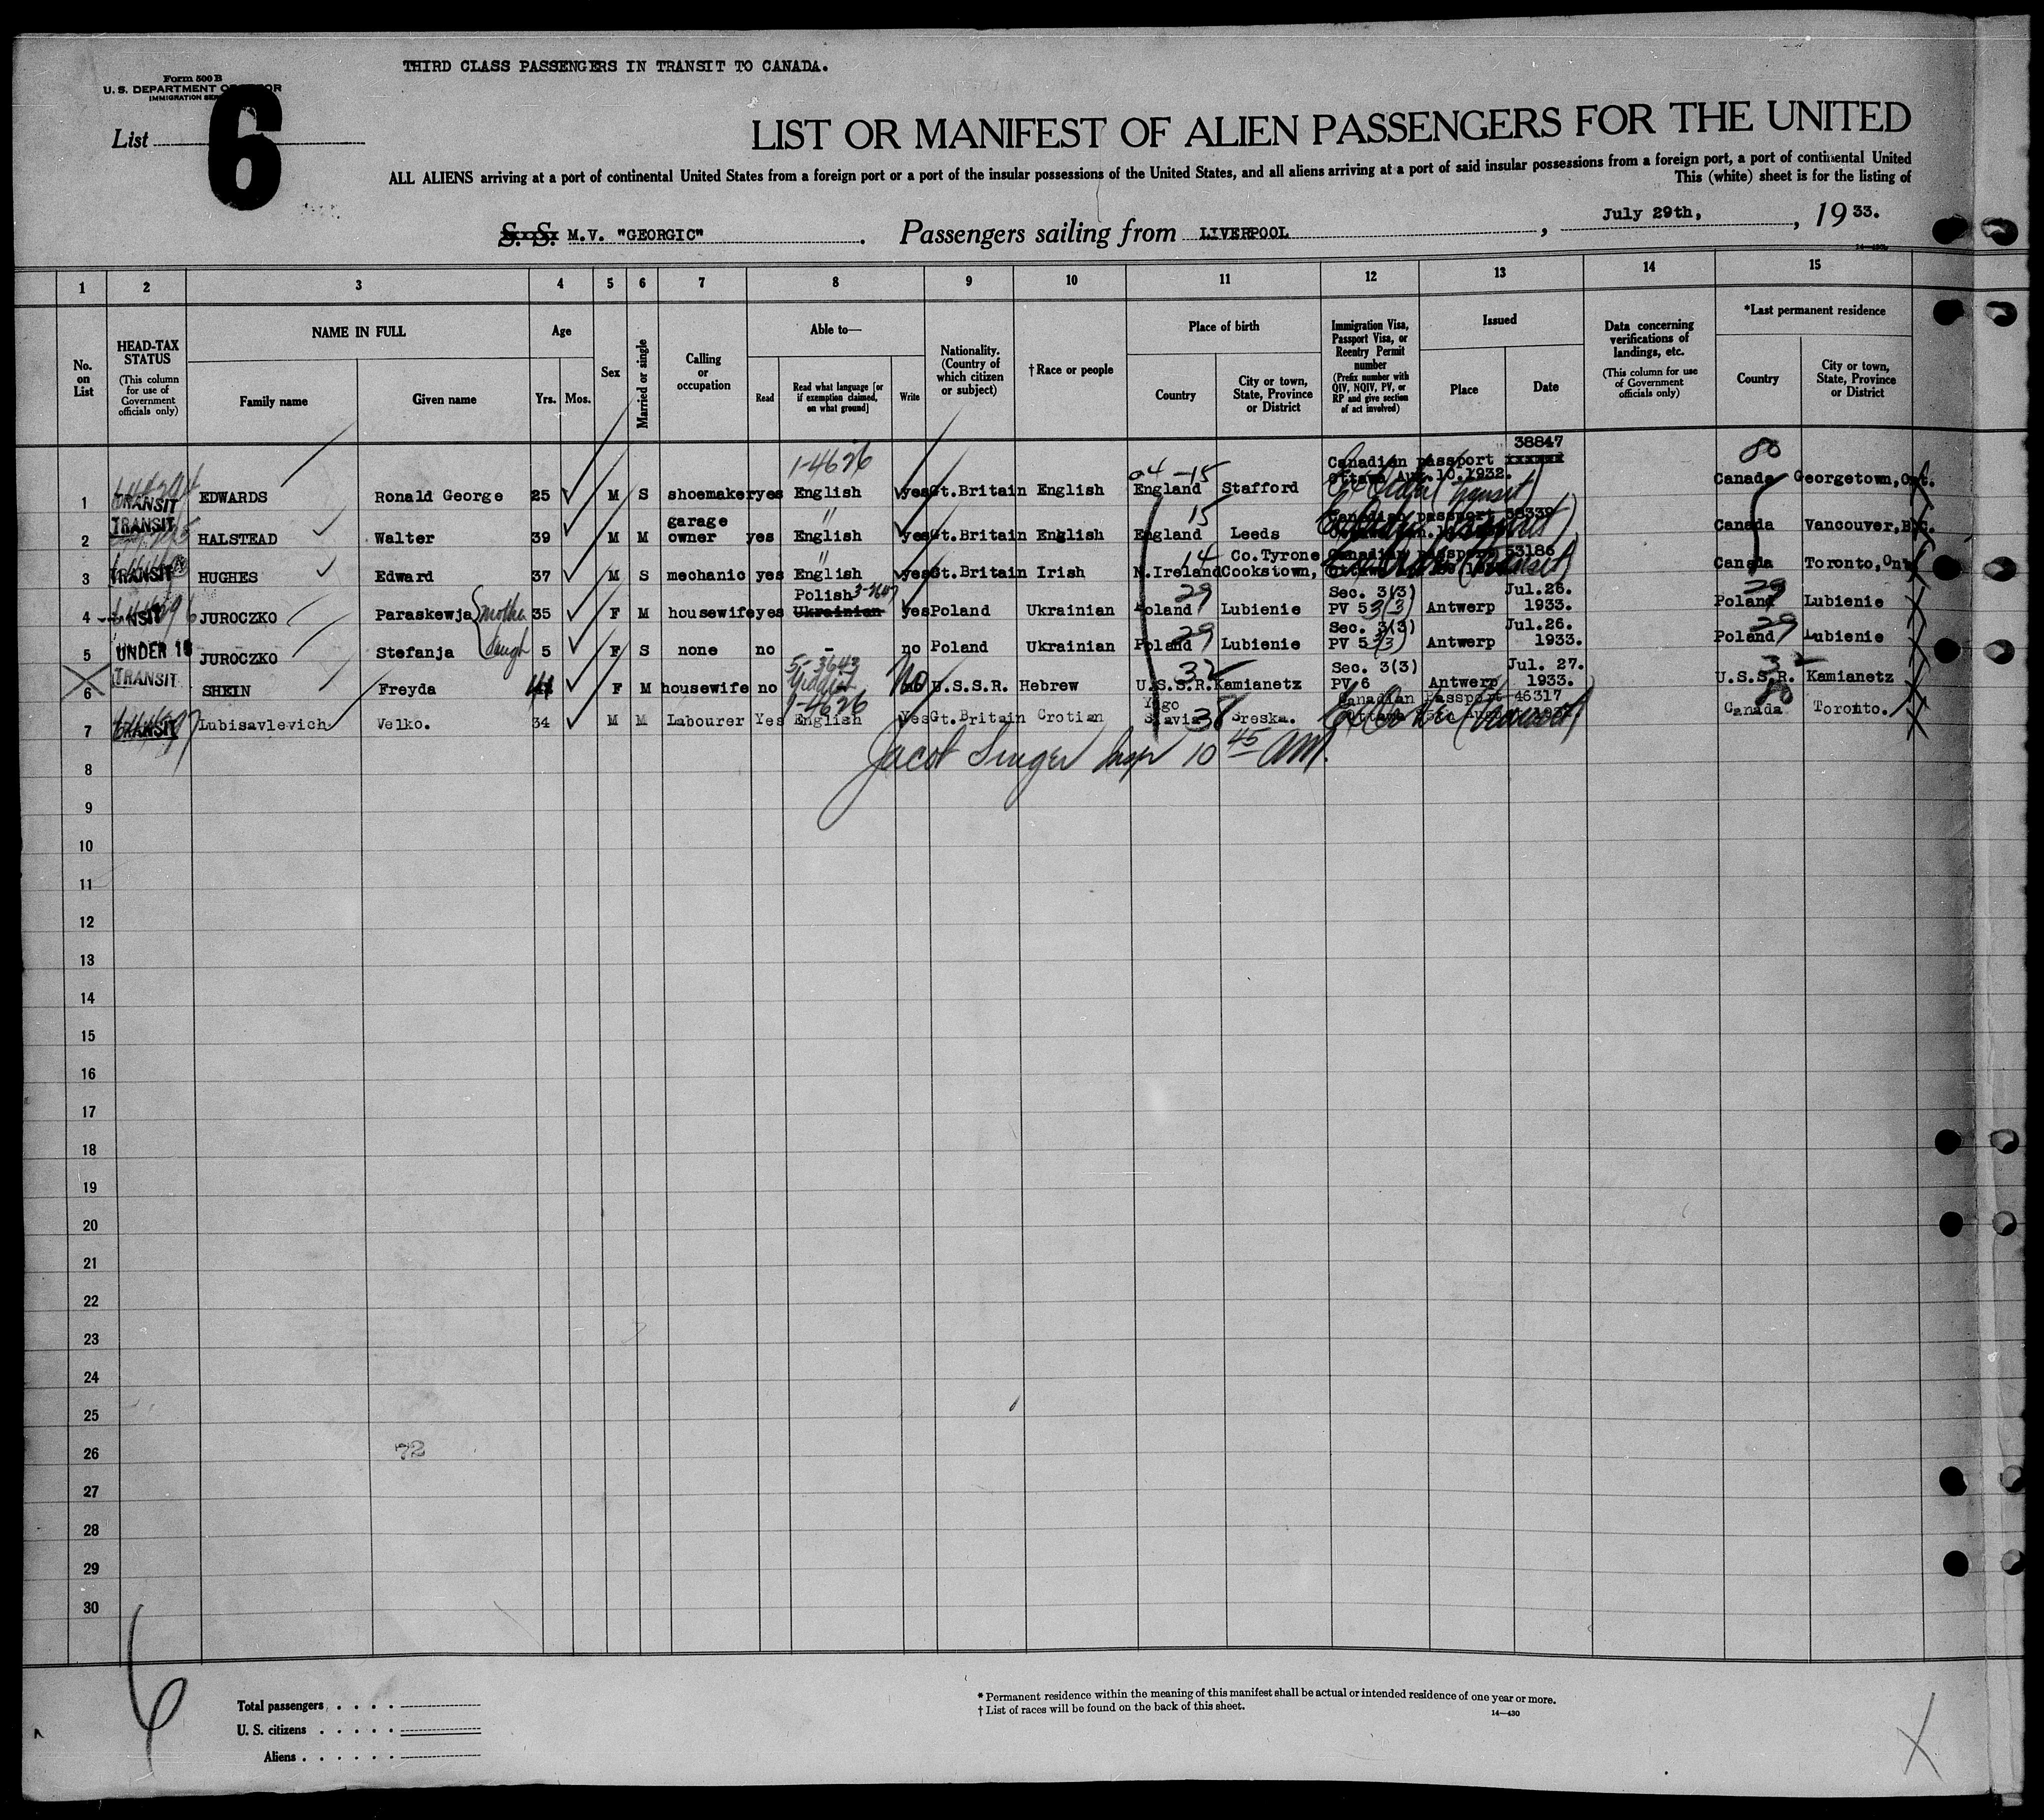 THIRD CLASS PASSENGERS IN TRANSIT TO CANADA.
Form 500 B
U. S. DEPARTMENT OF LABOR
IMMIGRATION SERVICE
List 6
LIST OR MANIFEST OF ALIEN PASSENGERS FOR THE UNITED
ALL ALIENS arriving at a port of continental United States from a foreign port or a port of the insular possessions of the United States, and all aliens arriving at a port of said insular possessions from a foreign port, a port of continental United
This (white) sheet is for the listing of
S. S. M.V. "GEORGIC" . Passengers sailing from LIVERPOOL , July 29th, , 19 33.
1 2 3 4 5 6 7 8 9 10 11 12 13 14 15
No. on List
HEAD-TAX STATUS (This column for use of Government officials only)
NAME IN FULL
Family name Given name
Age
Yrs. Mos.
Sex
Married or single
Calling or occupation
Able to—
Read Read what language [or if exemption claimed, on what ground] Write
Nationality. (Country of which citizen or subject)
†Race or people
Place of birth
Country City or town, State, Province or District
Immigration Visa, Passport Visa, or Reentry Permit number (Prefix number with QIV, NQIV, PV, or RP and give section of act involved)
Issued
Place Date
Data concerning verifications of landings, etc. (This column for use of Government officials only)
*Last permanent residence
Country City or town, State, Province or District
38847
1-4626 Canadian passport xxxxxx 80
04-15 Ottawa Apr. 10. 1932.
1 TRANSIT EDWARDS Ronald George 25 M S shoemaker yes English yes Gt.Britain English England Stafford Canada Georgetown, Ont.
TRANSIT garage " 15 Canadian passport 38339
2 HALSTEAD Walter 39 M M owner yes English yes Gt.Britain English England Leeds Canada Vancouver, B.C.
" 14 Co.Tyrone Canadian passport 53186
3 TRANSIT HUGHES Edward 37 M S mechanic yes English yes Gt.Britain Irish N.Ireland Cookstown, Canada Toronto, Ont
Polish 29 Sec. 3(3) Jul.26. 29
4 NSIT JUROCZKO Paraskewja mother 35 F M housewife yes Ukrainian yes Poland Ukrainian Poland Lubienie PV 5 3(3) Antwerp 1933. Poland Lubienie
Sec. 3(3) Jul.26. 29
5 UNDER 16 JUROCZKO Stefanja daugh 5 F S none no - no Poland Ukrainian Poland 29 Lubienie PV 5 Antwerp 1933. Poland Lubienie
TRANSIT 5-3643 Yiddish 32 Sec. 3(3) Jul. 27. 32
6 SHEIN Freyda 41 F M housewife no No U.S.S.R. Hebrew U.S.S.R. Kamianetz PV 6 Antwerp 1933. U.S.S.R. Kamianetz
1-4626 Yugo Canadian Passport 46317 80
7 TRANSIT Lubisavlevich Velko. 34 M M Labourer Yes English Yes Gt.Britain Crotian Slavia Breska. Canada Toronto.
Jacob Singer Insp 10 45 AM.
8
9
10
11
12
13
14
15
16
17
18
19
20
21
22
23
24
25
26
72
27
28
29
30
6
Total passengers . . . .
U. S. citizens . . . . .
Aliens . . . . . .
* Permanent residence within the meaning of this manifest shall be actual or intended residence of one year or more.
† List of races will be found on the back of this sheet.
14—430